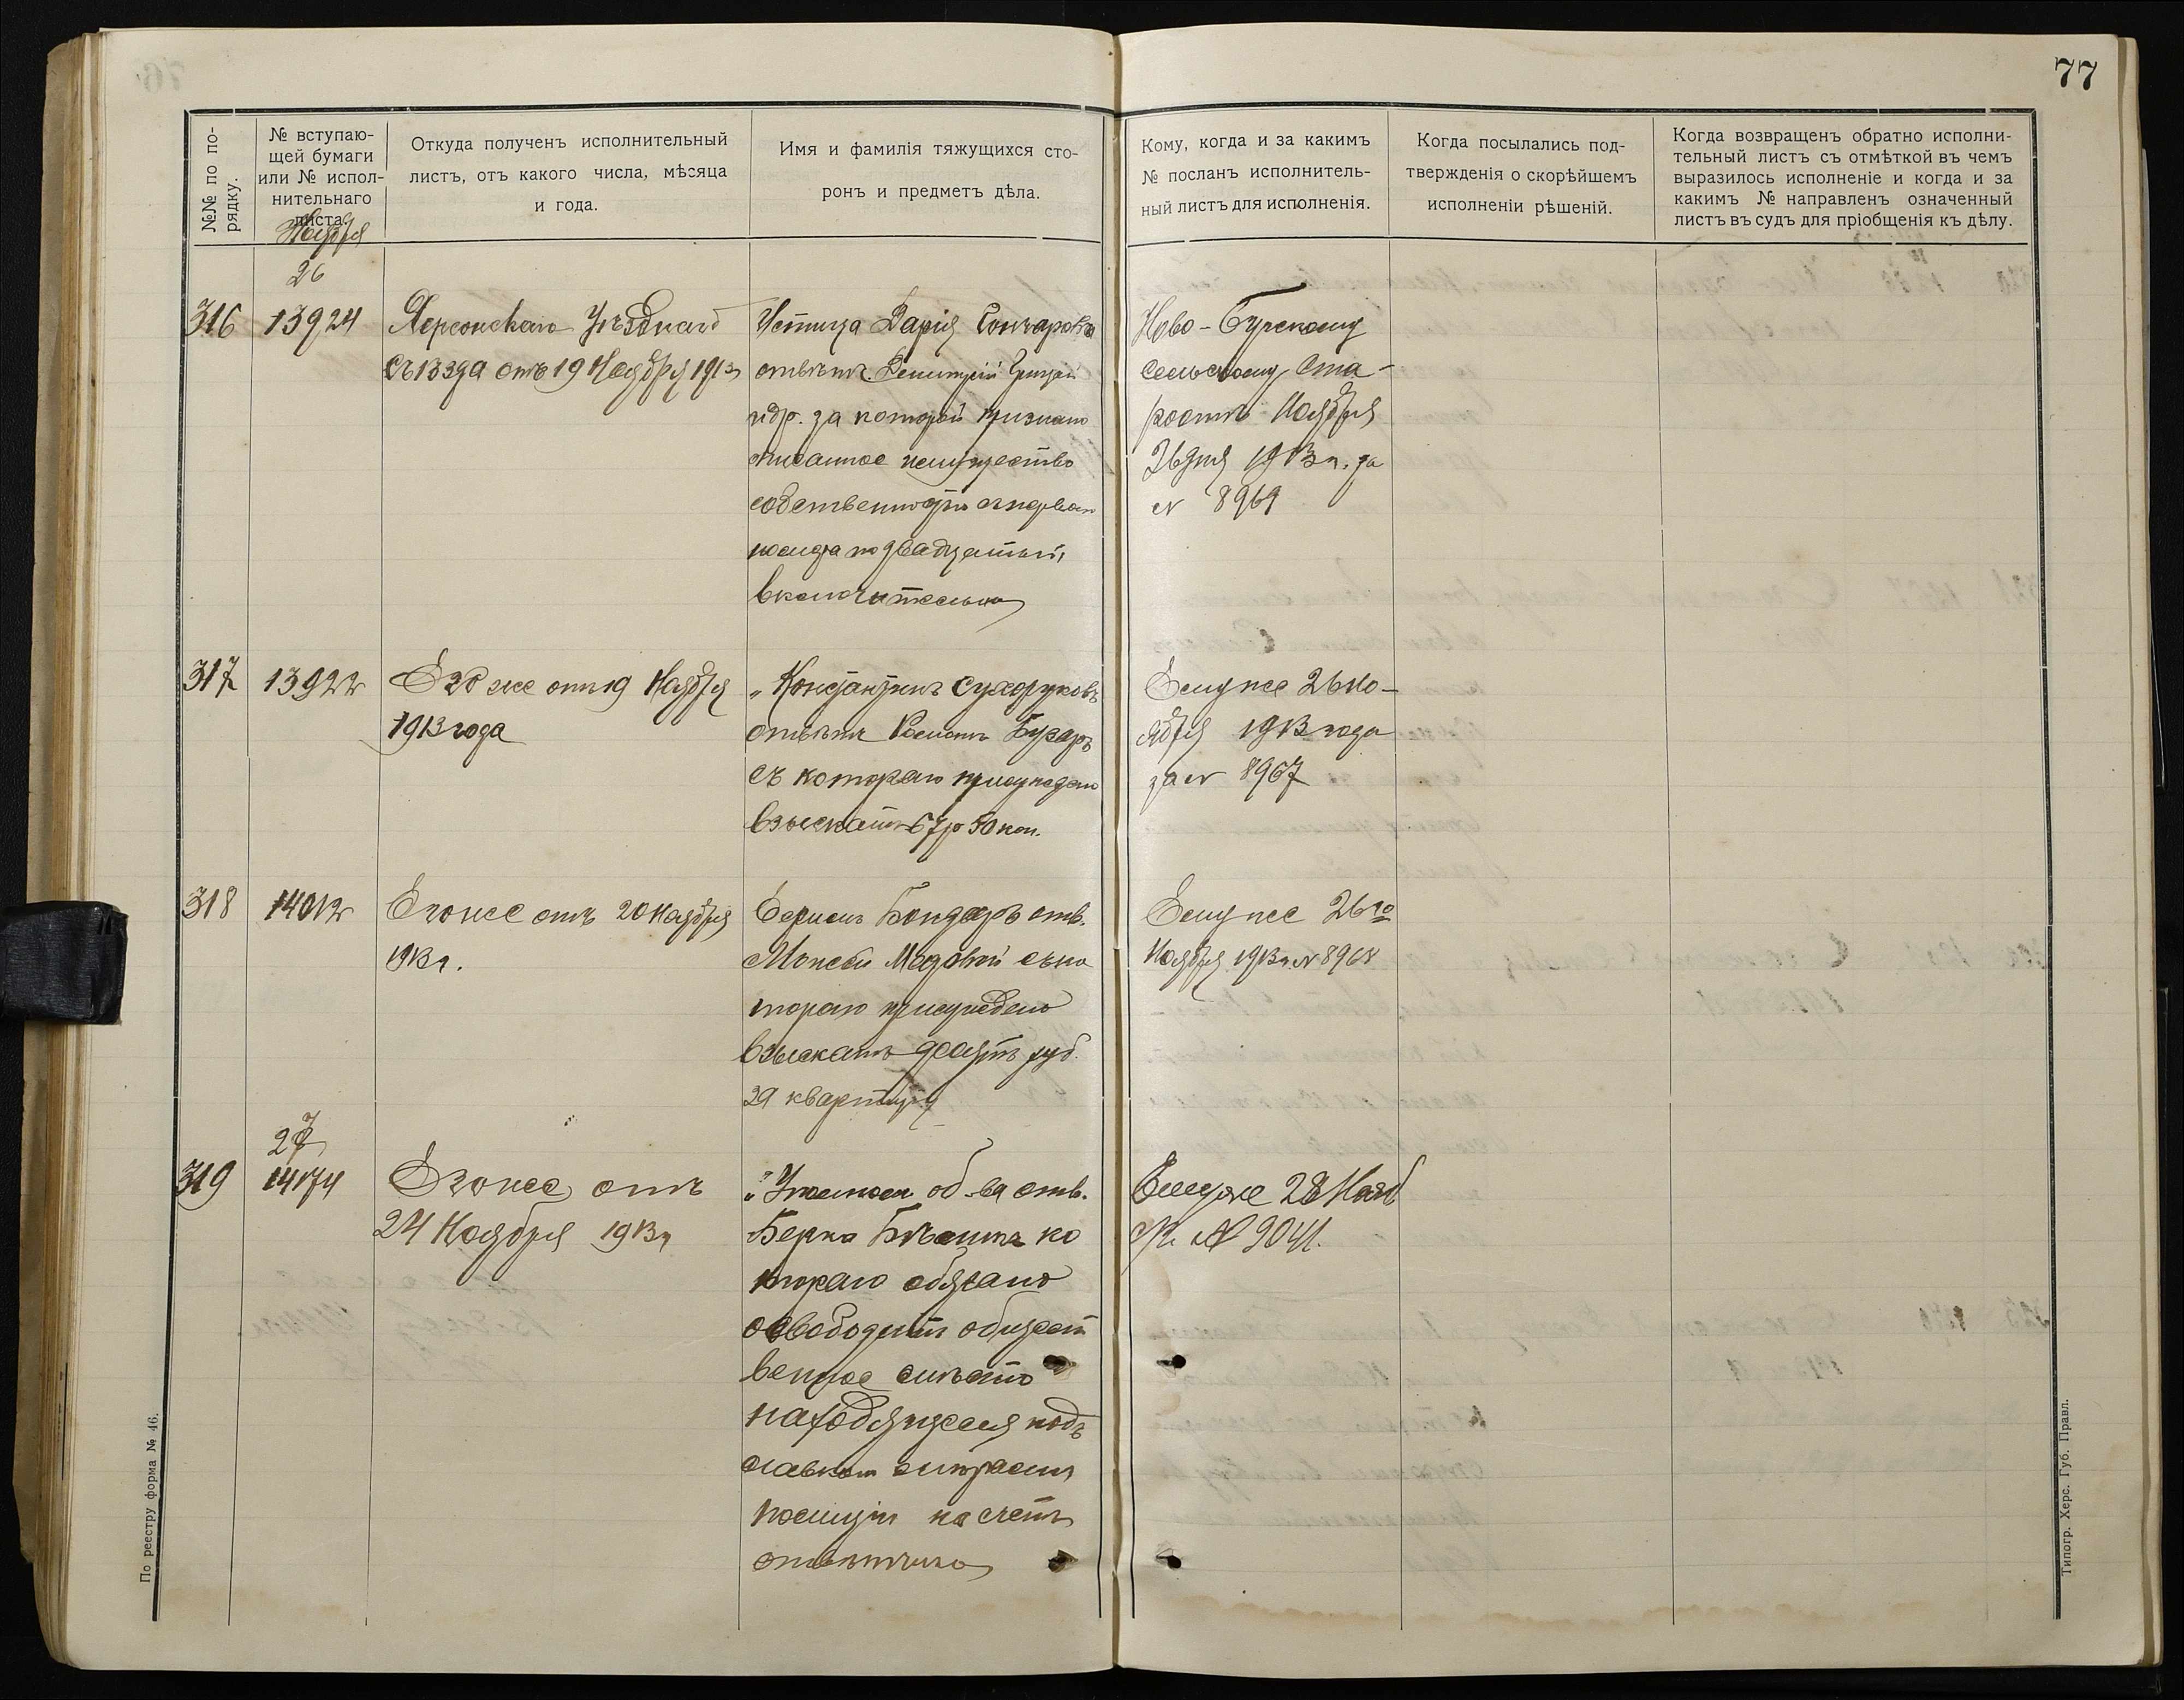 77
№№ по по-
рядку.
№ вступаю-
щей бумаги
или № испол-
нительнаго
листа.
Откуда полученъ исполнительный
листъ, отъ какого числа, мѣсяца
и года.
Имя и фамилія тяжущихся сто-
ронъ и предметъ дѣла.
Кому, когда и за какимъ
№ посланъ исполнитель-
ный листъ для исполненія.
Когда посылались под-
твержденія о скорѣйшемъ
исполненіи рѣшеній.
Когда возвращенъ обратно исполни-
тельный листъ съ отмѣткой въ чемъ
выразилось исполненіе и когда и за
какимъ № направленъ означенный
листъ въ судъ для пріобщенія къ дѣлу.
Ноября
26
316
13924
Херсонскаго Уѣзднаго
Съѣзда отъ 19 Ноября 1913
Истица Дарія Гончарова
отвѣтч. Димитрій
идр. за которой признано
описанное имущество
собственностью
по двадцатый
включительно
Ново-Бугскому
Сельскому Ста-
ростѣ Ноября
26 дня 1913 г. за
№ 8969
317
13922
Его же отъ 19 Ноября
1913 года
„ Константинъ Сухоруковъ
отвѣтч.
съ котораго присуждено
взыскать 67 р 50 коп.
Ему же 26 Но-
ября 1913 года
за № 8967
318
14012
Его же отъ 20 Ноября
1913 г.
Бондарь отв.
съ ко
тораго присуждено
взыскать десять руб.
за квартиру
Ему же 26го
Ноября 1913 г. № 8968
27
319
14174
Его же отъ
24 Ноября 1913 г
об-ва отв.
Берка ко
тораго обязано
освободить общест
венное мѣсто
находящееся подъ
лавкой
на счетъ
отвѣтчика
Ему же 28 Нояб
№ 9041.
По реестру форма № 46.
Типогр. Херс. Губ. Правл.